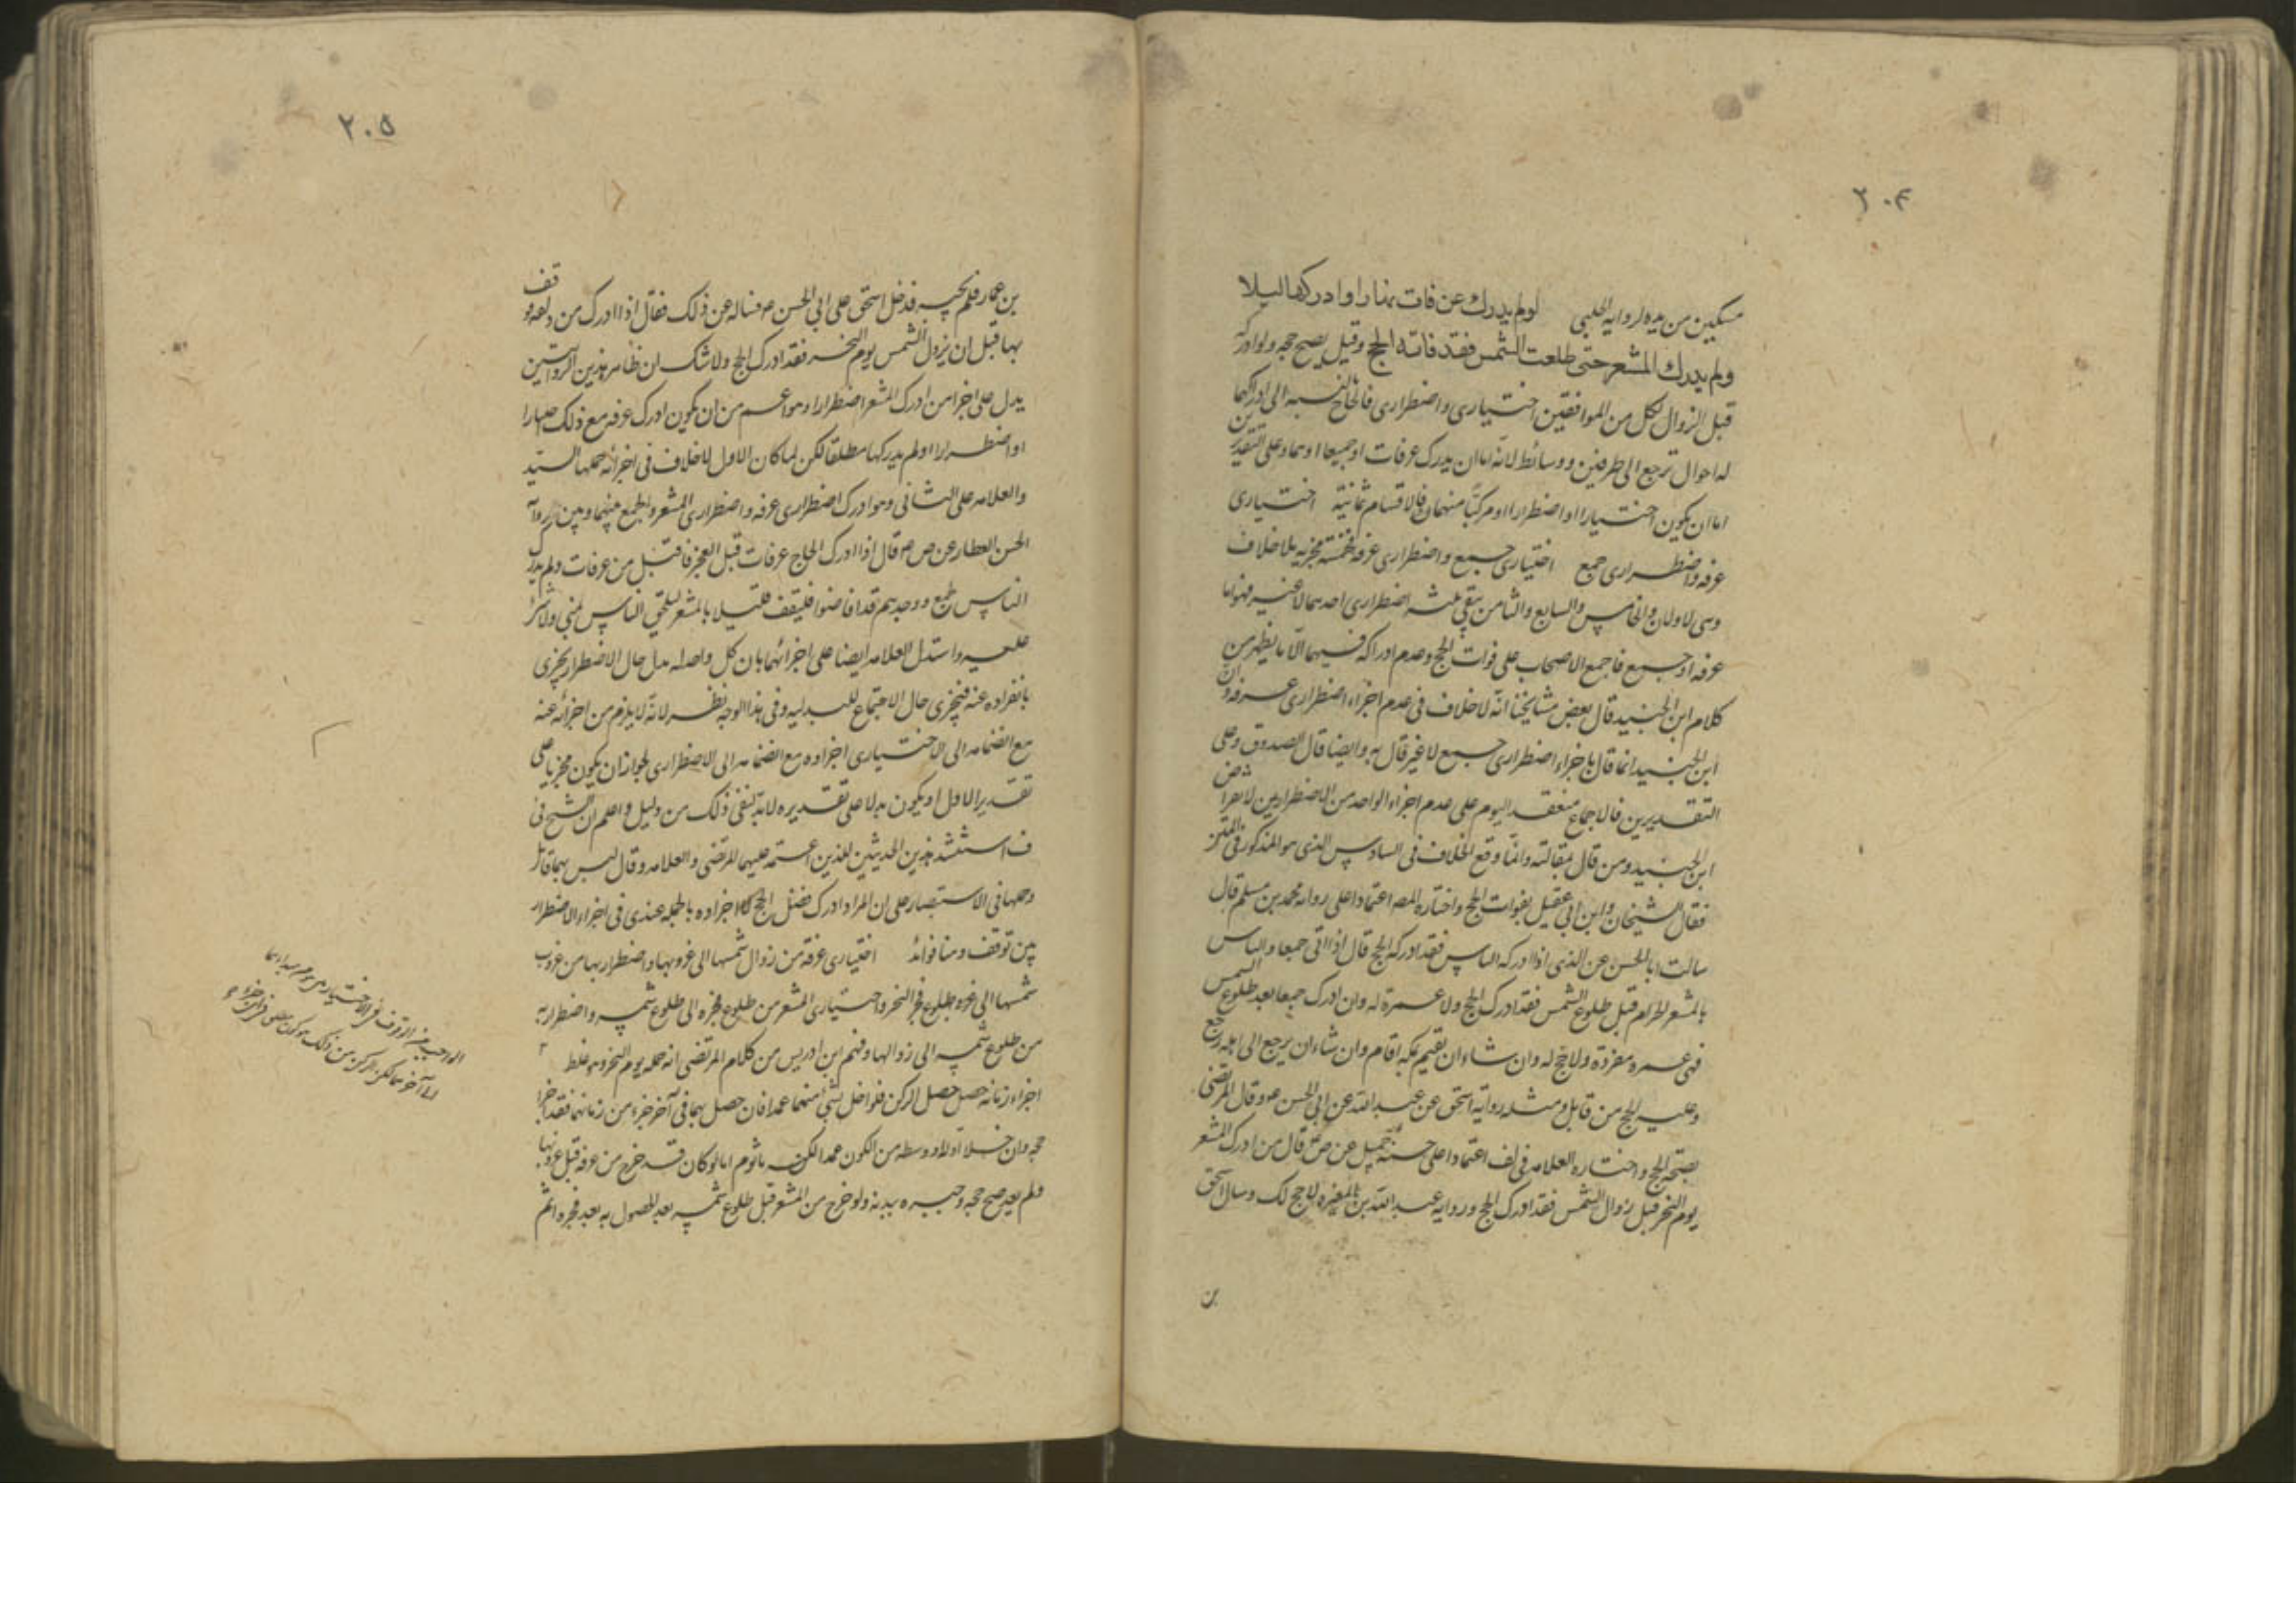 ٢٠٤
مسكين من بدله لرواية الحلبي لو لم يدرك عن فات نهارا وادركها ليلا
ولم يدرك المشعر حتى طلعت الشمس فقد فاته الحج وقيل يصح حجه ولو ادركه
قبل الزوال لكل من الموافقين اختياري واضطراري فالحاج بالنسبه الى ادراكهما
له احوال ترجع الى طرفين ووسائط لانه اما ان يدرك عرفات او جمعا او هما وعلى التقديرين
اما ان يكون اختيارا او اضطرارا او مركبا منهما فالاقسام ثمانية اختياري
عرفه واضطراري جمع اختياري جمع واضطراري عرفه فخمسة مجزيه بلا خلاف
وهى الاولان والخامس والسابع والثامن بقي ثلثه اضطراري احدهما لا غير فهو اما
عرفه او جمع فاجمع الاصحاب على فوات الحج وعدم ادراكه فيهما الا ما يظهر من
كلام ابن الجنيد قال بعض مشايخنا انه لا خلاف في عدم اجزاء اضطراري عرفه وان
ابن الجنيد انما قال باجزاء اضطراري جمع لا غير قال به وايضا قال الصدوق وعلى
التقديرين فالاجماع منعقد اليوم على عدم اجزاء الواحد من الاضطراريين لانقراض
ابن الجنيد ومن قال بمقالته وانما وقع الخلاف في السادس الذى هو المذكور في المتن
فقال الشيخان وابن ابي عقيل بفوات الحج واختاره المصـ اعتمادا على رواية محمد بن مسلم قال
سالت ابا الحسن عن الذى اذا ادركه الناس فقد ادركه الحج قال اذا اتى جمعا والناس
بالمشعر الحرام قبل طلوع الشمس فقد ادرك الحج ولا عمرة له وان ادرك جمعا بعد طلوع الشمس
فهى عمره مفردة ولا حج له وان شاء ان يقيم بمكه اقام وان شاء ان يرجع الى اهله رجع
وعليه الحج من قابل ومثله رواية اسحق عن عبد الله عن ابي الحسن ع وقال المرتضى
بصحة الحج واختاره العلامه في لف اعتمادا على حسنة جميل عن ص ع قال من ادرك المشعر
يوم النحر قبل زوال الشمس فقد ادرك الحج ورواية عبد الله بن المغيره لا حج لك وسال اسحق
بن
٢٠٥
بن عمار فلم يجبه فدخل اسحق على ابي الحسن ع فساله عن ذلك فقال اذا ادرك مزدلفه ووقف
بها قبل ان تزول الشمس يوم النحر فقد ادرك الحج ولا شك ان ظاهر هذين الروايتين
يدل على اجزا من ادرك المشعر اضطرارا وهو اعم من ان يكون ادرك عرفه مع ذلك اختيارا
او اضطرارا او لم يدركها مطلقا لكن لما كان الاول لا خلاف في اجزائه حملها السيد
والعلامه على الثانى وهو ادرك اضطراري عرفه واضطراري المشعر والجمع بينهما وبين رواية
الحسن العطار عن ص ع قال اذا ادرك الحاج عرفات قبل الفجر فاقبل من عرفات ولم يدرك
الناس بجمع ووجدهم قد افاضوا فليقف قليلا بالمشعر ليلحق الناس بمنى ولا شئ
عليه واستدل العلامه ايضا على اجزائهما بان كل واحد له بدل حال الاضطرار يجزى
بانفراده عنه فيجزى حال الاجتماع للبدليه وفى هذا الوجه نظر لانه لا يلزم من اجزائه عنه
مع انضمامه الى الاختياري اجزاوه مع انضمامه الى الاضطراري لجواز ان يكون مجزيا على
تقدير الاول او يكون بدلا على تقديره لابد لنفى ذلك من دليل واعلم ان الشيخ فى
ف استشهد بهذين الحديثين اللذين اعتمد عليهما المرتضى والعلامه وقال ليس بهما قائل
وحملها في الاستبصار على ان المراد ادرك فضل الحج لا اجزاوه بالجمله عندى فى اجزاء الاضطرار
يين توقف وهنا فوائد اختياري عرفة من زوال شمسها الى غروبها واضطراريها من غروب
شمسها الى طلوع فجر النحر واختيارى المشعر من طلوع فجره الى طلوع شمسه واضطراريه
من طلوع شمسه الى زوالها وفهم ابن ادريس من كلام المرتضى انه جمله يوم النحر وهو غلط ٢
اجزاء زمانه حصل حصل الركن فلو اخل بشئ منهما عمدا فان حصل بهما فى آخر جزء من زمانهما فقد اجزا
حجه وان خلا اوله او وسطه من الكون عمدا لكنه ياثوم اما لو كان قد خرج من عرفه قبل غروبها
ولم يعد صح حجه وجبره ببدنه ولو خرج من المشعر قبل طلوع شمسه بعد الحصول به بعد فجره اثم
الواجب من الوقوف فى الاختيار من